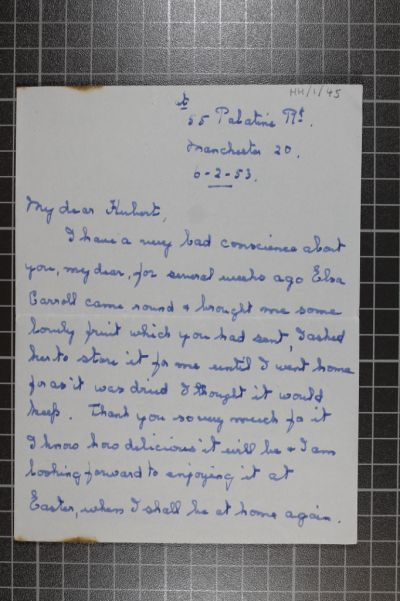 HH/1/45
at
55 Palatine Rd.
Manchester 20.
6-2-53.
My dear Hubert,
I have a very bad conscience about
you, my dear, for several weeks ago Elsa
Carroll came round & brought me some
lovely fruit which you had sent, I asked
her to store it for me until I went home
for as it was dried I thought it would
keep. Thank you so very much for it
I know how delicious it will be & I am
looking forward to enjoying it at
Easter, when I shall be at home again.